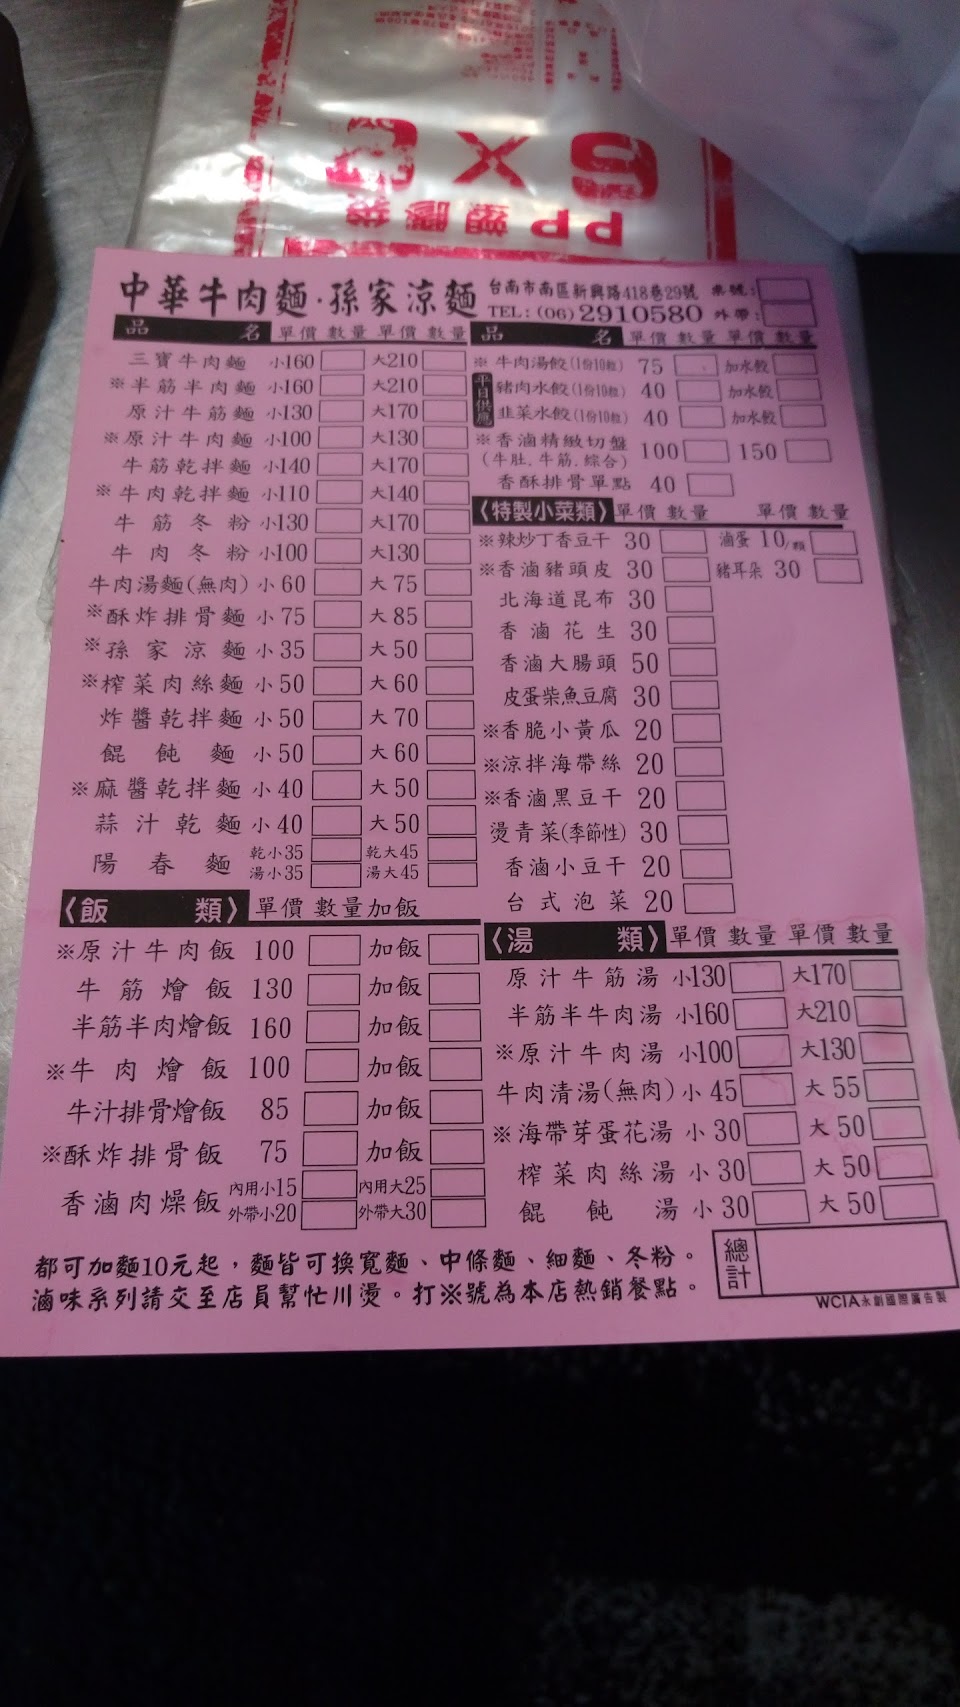 6 X 9
PP塑膠袋
中華牛肉麵·孫家涼麵
台南市南區新興路418巷29號 桌號:
TEL:(06)2910580 外帶:
品名 單價 數量 單價 數量
三寶牛肉麵 小160 大210
※半筋半肉麵 小160 大210
原汁牛筋麵 小130 大170
※原汁牛肉麵 小100 大130
牛筋乾拌麵 小140 大170
※牛肉乾拌麵 小110 大140
牛筋冬粉 小130 大170
牛肉冬粉 小100 大130
牛肉湯麵(無肉) 小60 大75
※酥炸排骨麵 小75 大85
※孫家涼麵 小35 大50
※榨菜肉絲麵 小50 大60
炸醬乾拌麵 小50 大70
餛飩麵 小50 大60
※麻醬乾拌麵 小40 大50
蒜汁乾麵 小40 大50
陽春麵 乾小35 乾大45
湯小35 湯大45
〈飯類〉 單價 數量 加飯
※原汁牛肉飯 100 加飯
牛筋燴飯 130 加飯
半筋半肉燴飯 160 加飯
※牛肉燴飯 100 加飯
牛汁排骨燴飯 85 加飯
※酥炸排骨飯 75 加飯
香滷肉燥飯 內用小15 內用大25
外帶小20 外帶大30
品名 單價 數量 單價 數量
※牛肉湯餃(1份10粒) 75 加水餃
平日供應
豬肉水餃(1份10粒) 40 加水餃
韭菜水餃(1份10粒) 40 加水餃
※香滷精緻切盤 100 150
(牛肚.牛筋.綜合)
香酥排骨單點 40
〈特製小菜類〉 單價 數量 單價 數量
※辣炒丁香豆干 30 滷蛋 10/顆
※香滷豬頭皮 30 豬耳朵 30
北海道昆布 30
香滷花生 30
香滷大腸頭 50
皮蛋柴魚豆腐 30
※香脆小黃瓜 20
※涼拌海帶絲 20
※香滷黑豆干 20
燙青菜(季節性) 30
香滷小豆干 20
台式泡菜 20
〈湯類〉 單價 數量 單價 數量
原汁牛筋湯 小130 大170
半筋半牛肉湯 小160 大210
※原汁牛肉湯 小100 大130
牛肉清湯(無肉) 小45 大55
※海帶芽蛋花湯 小30 大50
榨菜肉絲湯 小30 大50
餛飩湯 小30 大50
都可加麵10元起，麵皆可換寬麵、中條麵、細麵、冬粉。
滷味系列請交至店員幫忙川燙。打※號為本店熱銷餐點。
總計
WCIA永創國際廣告製